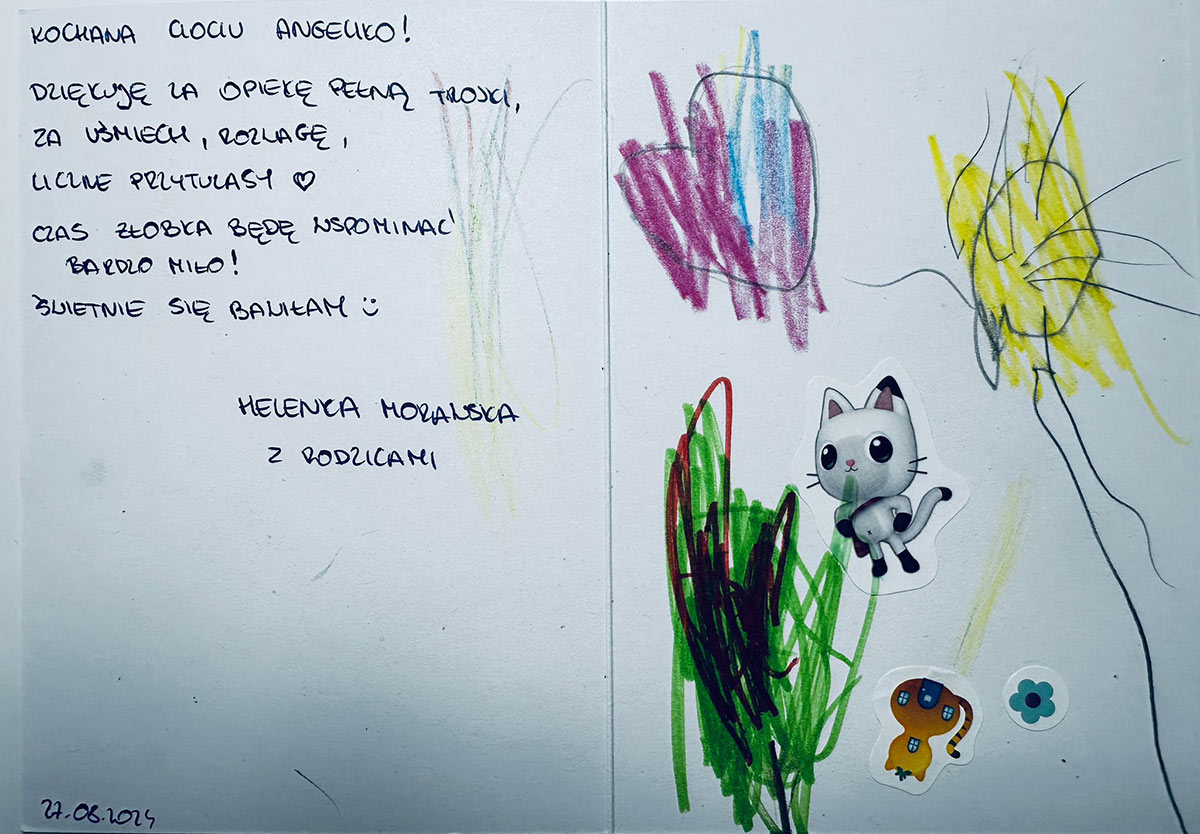 KOCHANA CIOCIU ANGELIKO!
DZIĘKUJĘ ZA OPIEKĘ PEŁNĄ TROSKI,
ZA UŚMIECH, ROZWAGĘ,
LICZNE PRZYTULASY ♡
CZAS ŻŁOBKA BĘDĘ WSPOMINAĆ
BARDZO MIŁO!
ŚWIETNIE SIĘ BAWIŁAM :)
HELENKA MORAWSKA
Z RODZICAMI
27.08.2024